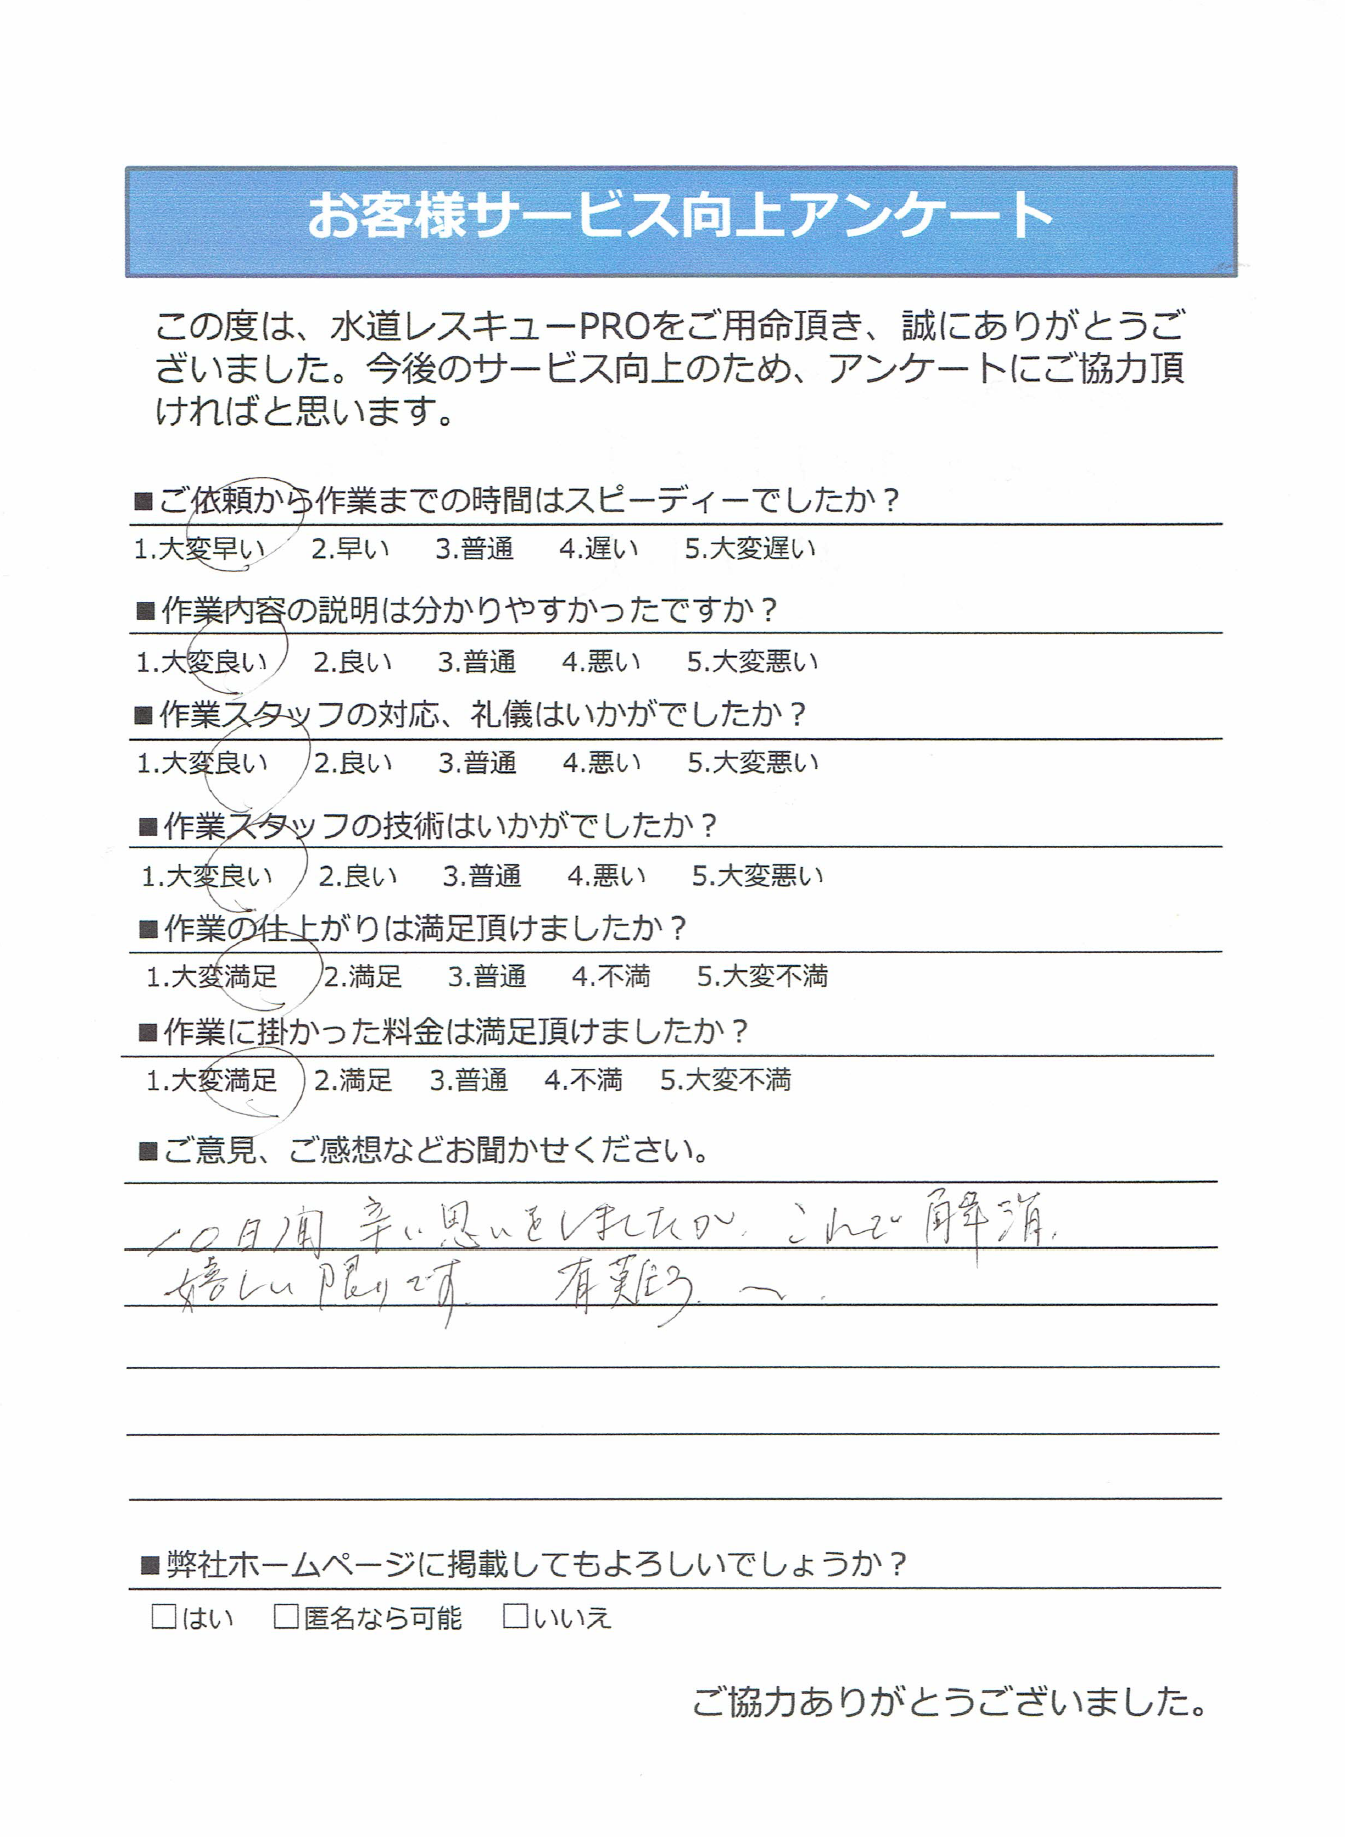 お客様サービス向上アンケート
この度は、水道レスキューPROをご用命頂き、誠にありがとうご
ざいました。今後のサービス向上のため、アンケートにご協力頂
ければと思います。
■ご依頼から作業までの時間はスピーディーでしたか？
1.大変早い 2.早い 3.普通 4.遅い 5.大変遅い
■作業内容の説明は分かりやすかったですか？
1.大変良い 2.良い 3.普通 4.悪い 5.大変悪い
■作業スタッフの対応、礼儀はいかがでしたか？
1.大変良い 2.良い 3.普通 4.悪い 5.大変悪い
■作業スタッフの技術はいかがでしたか？
1.大変良い 2.良い 3.普通 4.悪い 5.大変悪い
■作業の仕上がりは満足頂けましたか？
1.大変満足 2.満足 3.普通 4.不満 5.大変不満
■作業に掛かった料金は満足頂けましたか？
1.大変満足 2.満足 3.普通 4.不満 5.大変不満
■ご意見、ご感想などお聞かせください。
10日間 辛い思いをしましたが、これで解消、
嬉しい限りです。 有難う
■弊社ホームページに掲載してもよろしいでしょうか？
□はい □匿名なら可能 □いいえ
ご協力ありがとうございました。